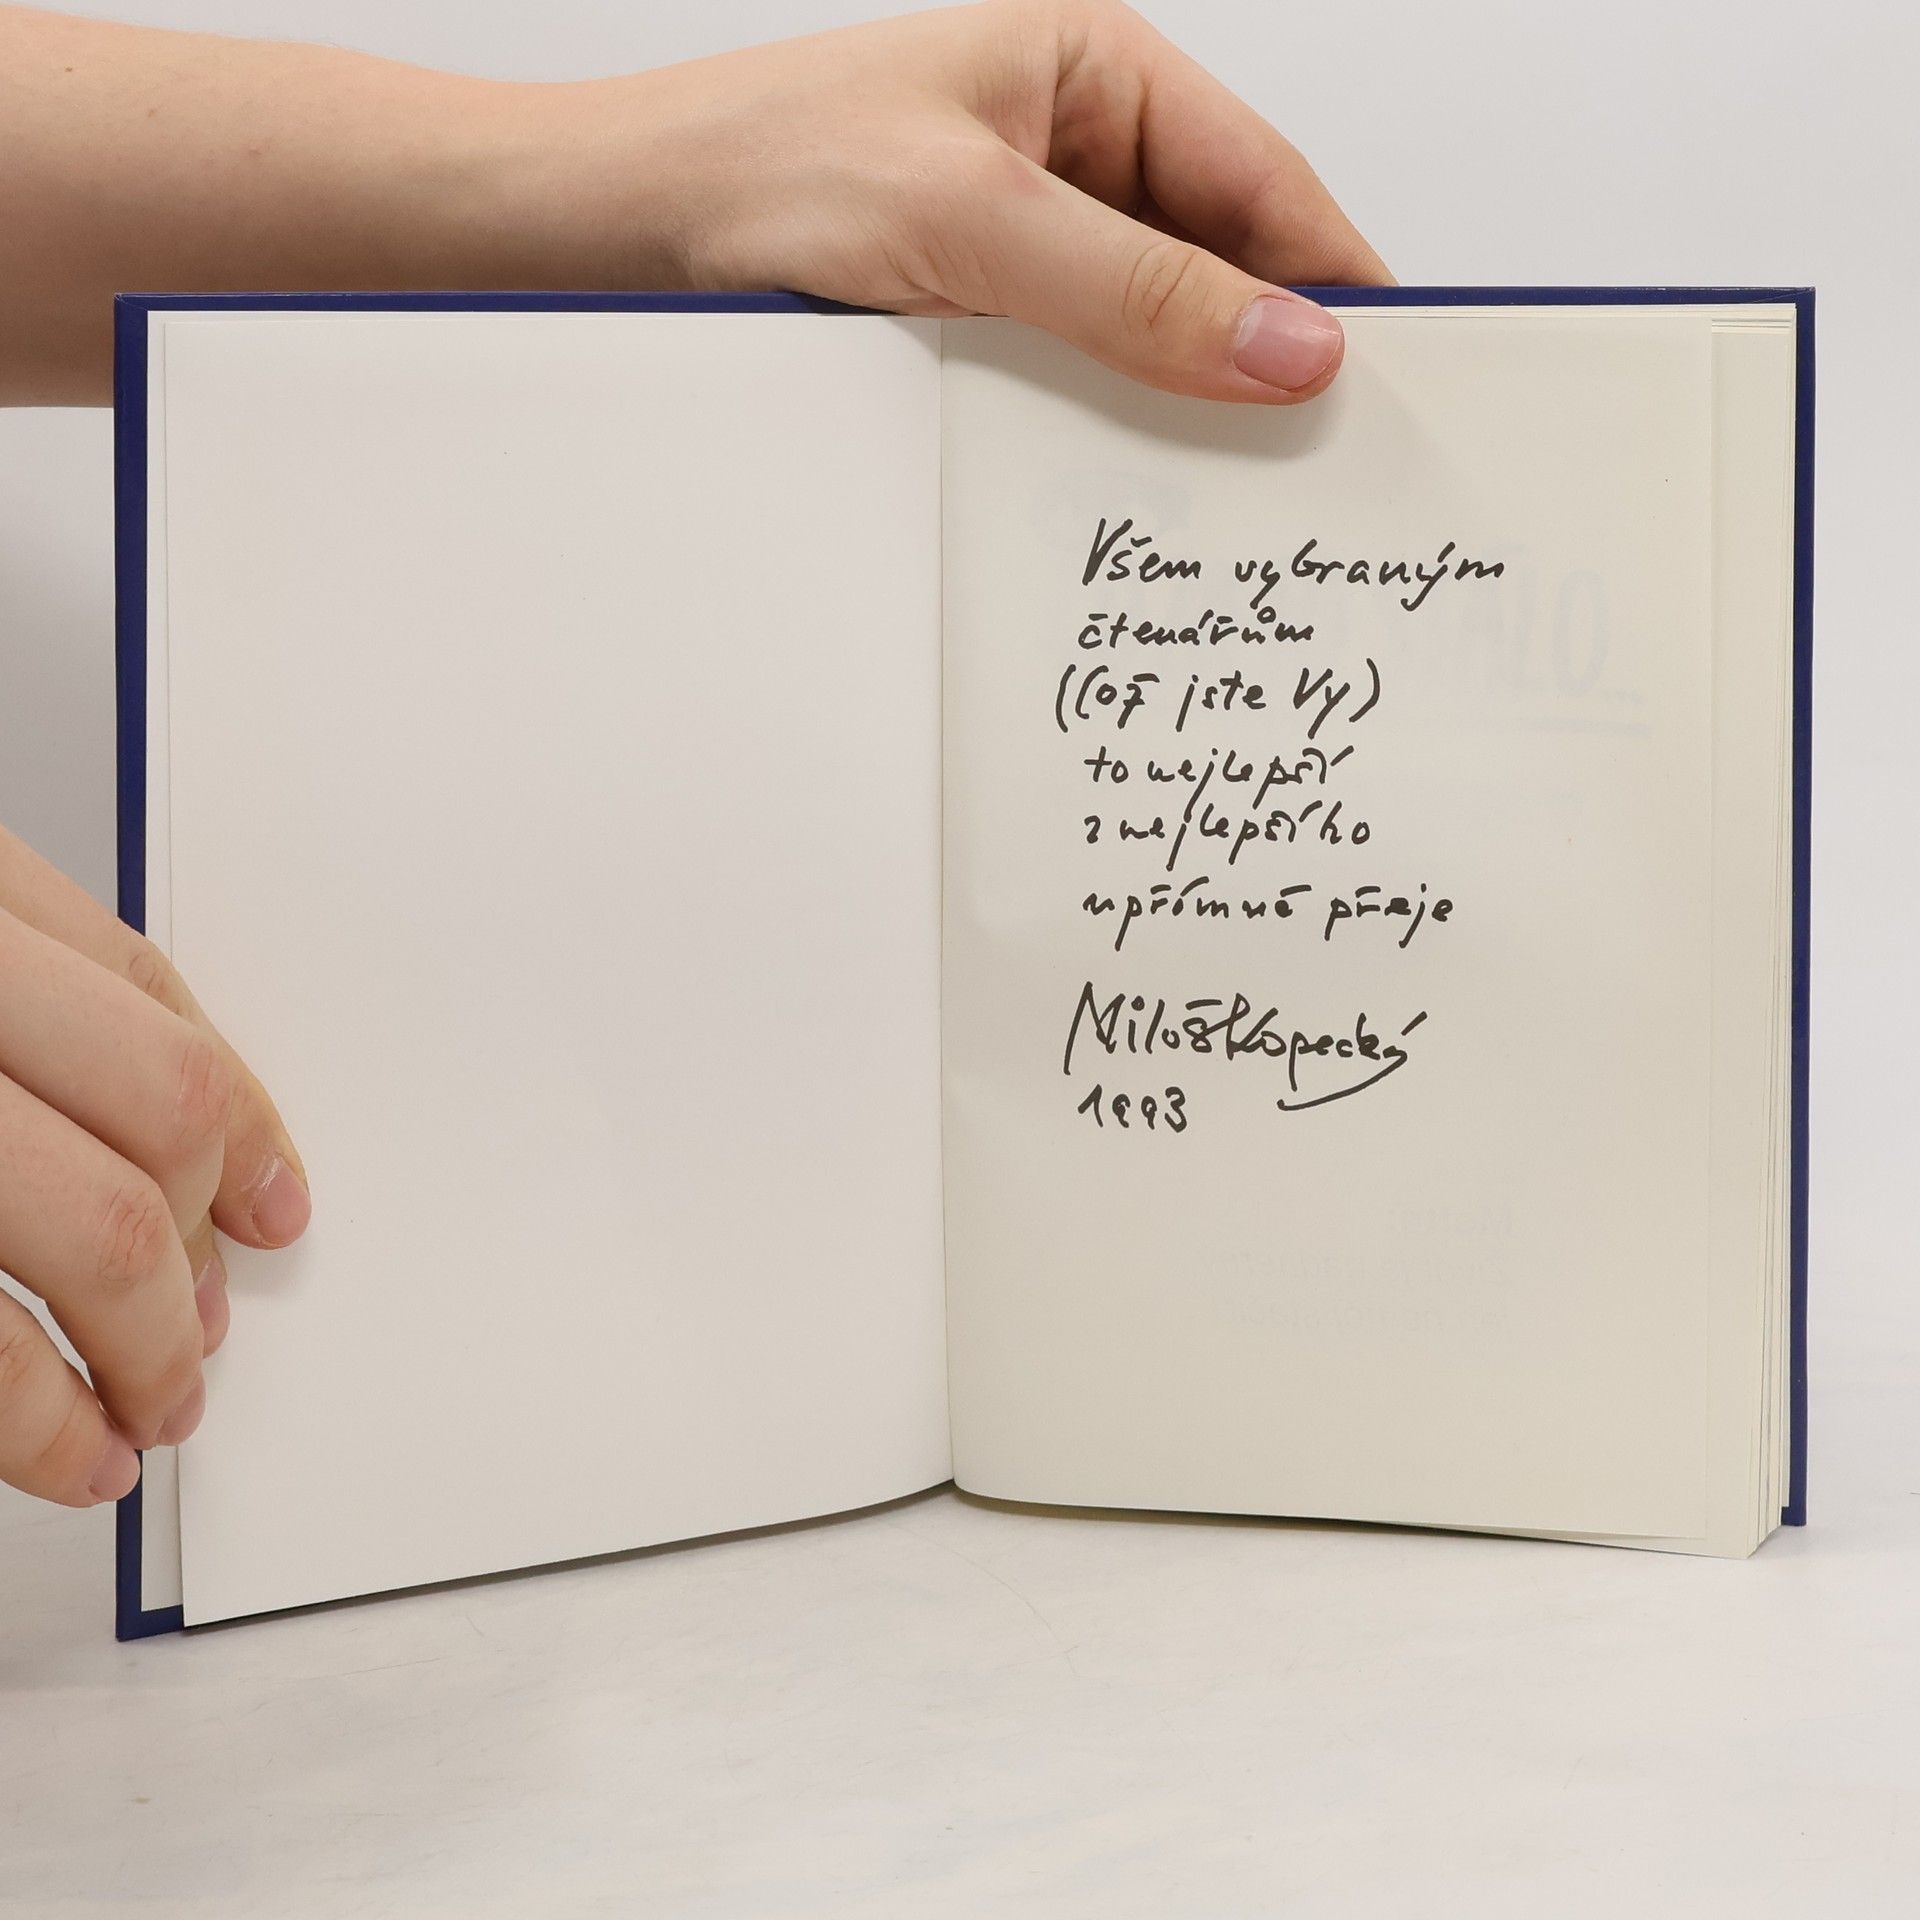 Všem vybraným
čtenářům
(Což jste Vy)
to nejlepší
z nejlepšího
upřímně přeje
Miloš Kopecký
1993